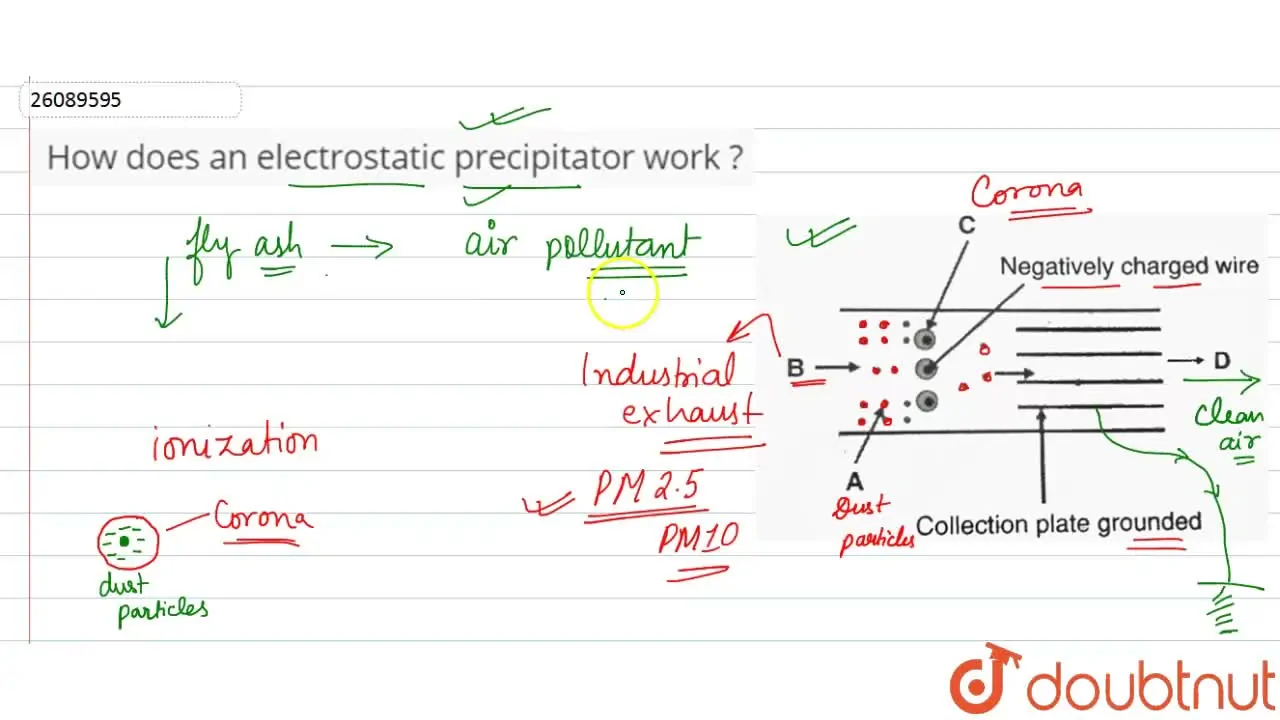 26089595
How does an electrostatic precipitator work ?
fly ash → air pollutant
Corona
C
Negatively charged wire
Industrial
exhaust
B
D
Clean
air
ionization
A
Dust
particles
Collection plate grounded
PM 2.5
PM10
Corona
dust
particles
doubtnut